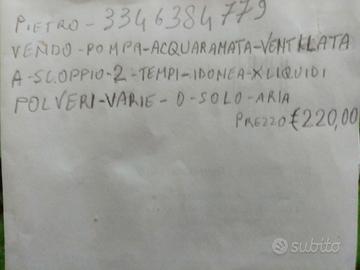 PIETRO - 3346384779
VENDO - POMPA - ACQUARAMATA - VENTILATA
A - SCOPPIO - 2 - TEMPI - IDONEA - X LIQUIDI
POLVERI - VARIE - O - SOLO - ARIA
PREZZO €220,00
subito